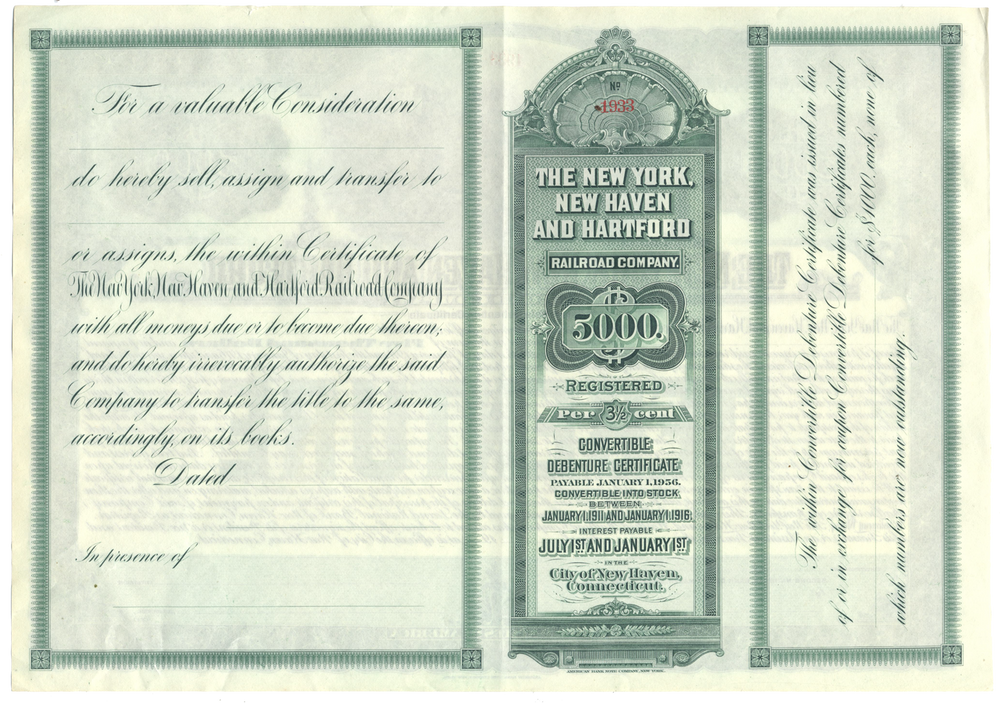 For a valuable Consideration
do hereby sell, assign and transfer to
or assigns, the within Certificate of
The New York, New Haven and Hartford Railroad Company
with all moneys due or to become due thereon;
and do hereby irrevocably authorize the said
Company to transfer the title to the same,
accordingly, on its books.
Dated
In presence of
No
1933
THE NEW YORK,
NEW HAVEN
AND HARTFORD
RAILROAD COMPANY.
$5000.
REGISTERED
Per 3½ cent
CONVERTIBLE
DEBENTURE CERTIFICATE
PAYABLE JANUARY 1, 1956.
CONVERTIBLE INTO STOCK
BETWEEN
JANUARY 1, 1911 AND JANUARY 1, 1916
INTEREST PAYABLE
JULY 1ST AND JANUARY 1ST
IN THE
City of New Haven,
Connecticut.
AMERICAN BANK NOTE COMPANY, NEW YORK.
The within Convertible Debenture Certificate was issued in lieu
of or in exchange for coupon Convertible Debenture Certificates numbered
for $1000. each, none of
which numbers are now outstanding.